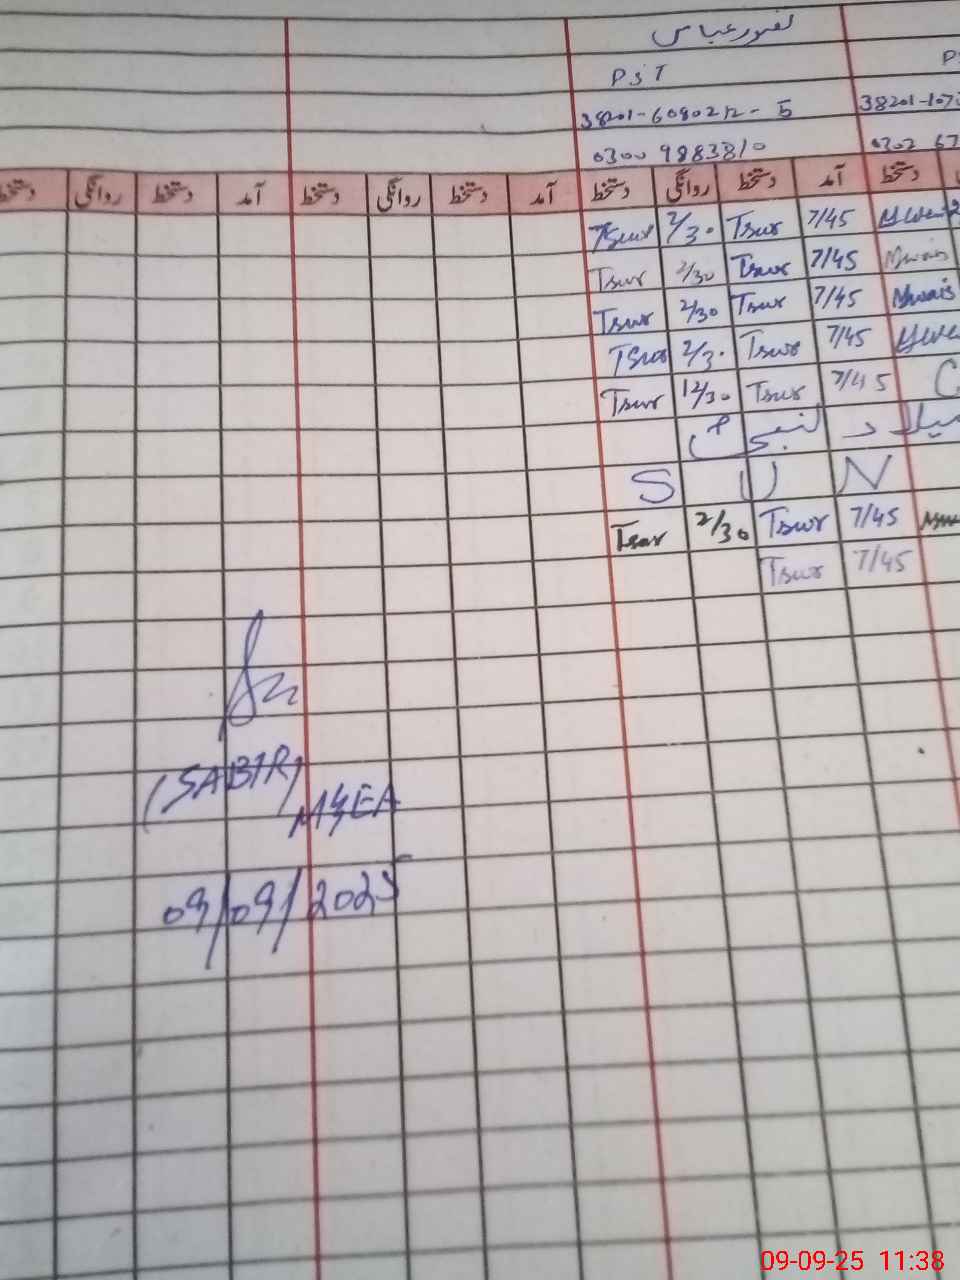 عباس
PST
38201-6080212-5 38201-107
0300 9883810 0302 67
دستخط روانگی دستخط آمد دستخط روانگی دستخط آمد دستخط روانگی دستخط آمد دستخط
Tsur 2/30 Tsur 7/45
Tsur 2/30 Tsur 7/45
Tsur 2/30 Tsur 7/45
Tsur 2/30 Tsur 7/45
Tsur 12/30 Tsur 7/45
میلاد النبی
S U N
Tsur 2/30 Tsur 7/45
Tsur 7/45
(SABIR)
M&EA
09/09/2025
09-09-25 11:38